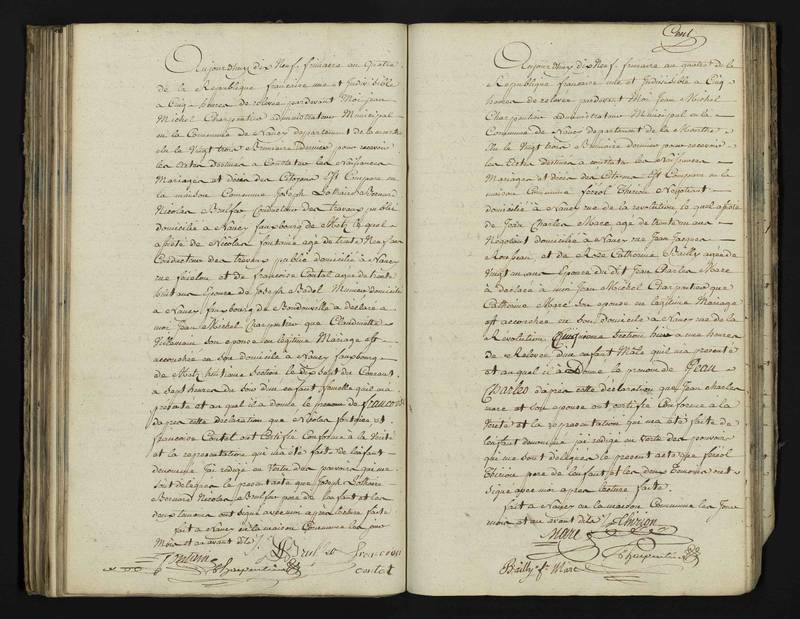 Aujourdhuy dix Neuf frimaire an quatre
de la Republique francaise une et Indivisible
a Cinq heures de relevée pardevant Moi jean
Michel Charpentier administrateur Municipal
en la Commune de Nancy departement de la meurthe
elu le Vingt trois Brumaire dernier pour recevoir
les Actes destinés a Constater les Naissances
Mariages et décès des Citoyens Est Comparu en
la maison Commune Joseph Bernard
Nicolas Brulfer Conducteur des travaux public
domicilié a Nancy fauxbourg de Metz le quel
assisté de Nicolas fontaine age de trente Neuf ans
Conducteur des travaux public domicilié a Nancy
rue et de francoise Contal agée de trente
huit ans Epouse de Joseph Badel domicilié
a Nancy fauxbourg de Boudonville a déclaré a
moi Jean Michel Charpentier que Claudinette
son epouse en légitime Mariage est
accouchée en son domicile a Nancy fauxbourg
de Metz huitieme Section le dix Sept du Courant
a Sept heures du soir d'un enfant femelle quil m'a
présenté et au quel il a donné le prenom de francoise
dapres cette déclaration que Nicolas fontaine et
francoise Contal ont Certifié Conforme a la Verité
et la représentation qui m'a été faite de l'enfant
denommé jai rédigé en Vertu des pouvoirs qui me
sont délégués le present acte que Joseph
Bernard Nicolas Brulfer pere de lenfant et les
deux temoins ont signé avec moi apres lecture faite
fait a Nancy en la maison Commune les jour
Mois et an avant dits
fontaine Brulfer francoise
Charpentier contal
Cent
Aujourdhuy dix Neuf frimaire an quatre de la
Republique francaise une et Indivisible a Cinq
heures de relevée pardevant Moi Jean Michel
Charpentier administrateur Municipal en la
Commune de Nancy departement de la Meurthe
elu le Vingt trois Brumaire dernier pour recevoir
les Actes destinés a constater les Naissances
Mariages et décès des Citoyens Est Comparu en la
maison Commune fériol Thirion Négotiant
domicilié a Nancy rue de la revolution le quel assisté
de Jean Charles Marc agé de trente un ans
Négotiant domicilié a Nancy rue Jean Jacques
Rousseau et de Rose Catherine Bailly agée de
Vingt un ans Epouse du dit Jean Charles Marc
a déclaré a moi Jean Michel Charpentier que
Catherine Marc son epouse en légitime Mariage
est accouchée en son domicile a Nancy rue de la
Revolution Cinquieme Section hier a une heure
de Relevée d'un enfant Mâle quil m'a présenté
et au quel il a Donné le prenom de Jean
Charles dapres cette déclaration que Jean charles
marc et son epouse ont certifié Conforme a la
Verité et la représentation qui m'a été faite de
lenfant denommé jai rédigé en Vertu des pouvoirs
qui me sont délégués le present acte que fériol
Thirion pere de lenfant et les deux Temoins ont
Signé avec moi apres lecture faite
fait a Nancy en la maison Commune les Jour
mois et an avant dits
Thirion
Marc
Charpentier
Bailly fe Marc